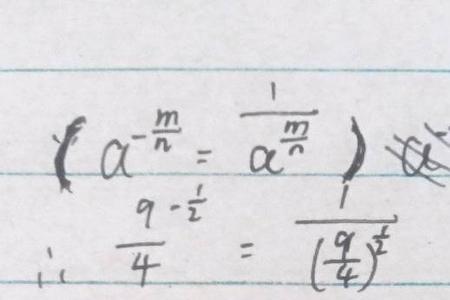 (a^{-\frac{m}{n}} = \frac{1}{a^{\frac{m}{n}}})
∴ \frac{9}{4}^{-\frac{1}{2}} = \frac{1}{(\frac{9}{4})^{\frac{1}{2}}}